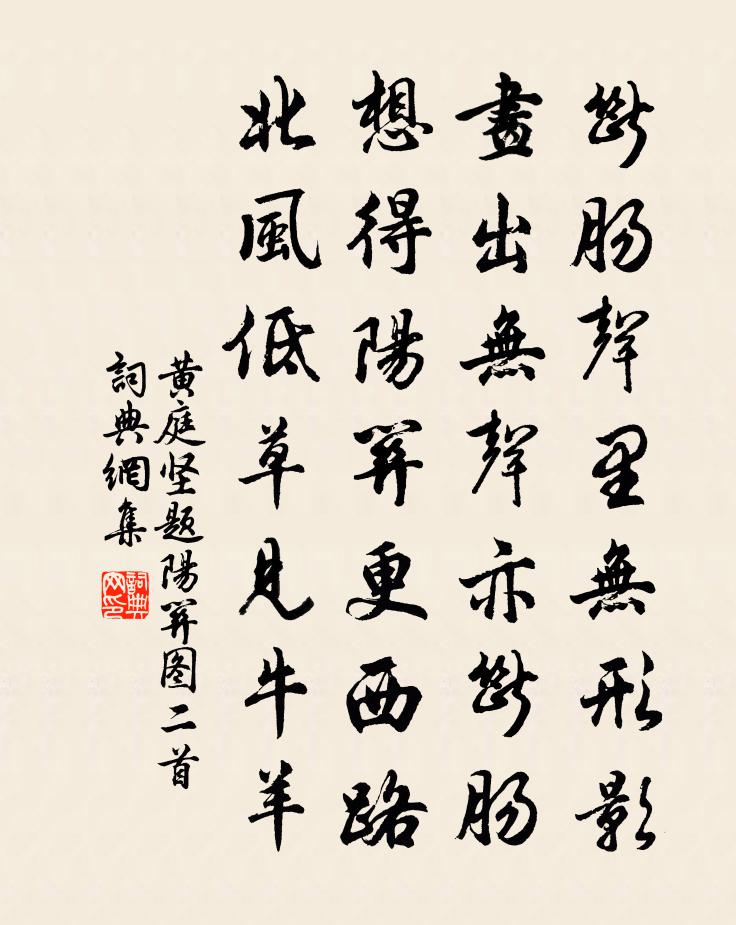 斷腸聲里無形影
畫出無聲亦斷腸
想得陽關更西路
北風低草見牛羊
黄庭坚题陽關图二首
詞典網集
詞典网印